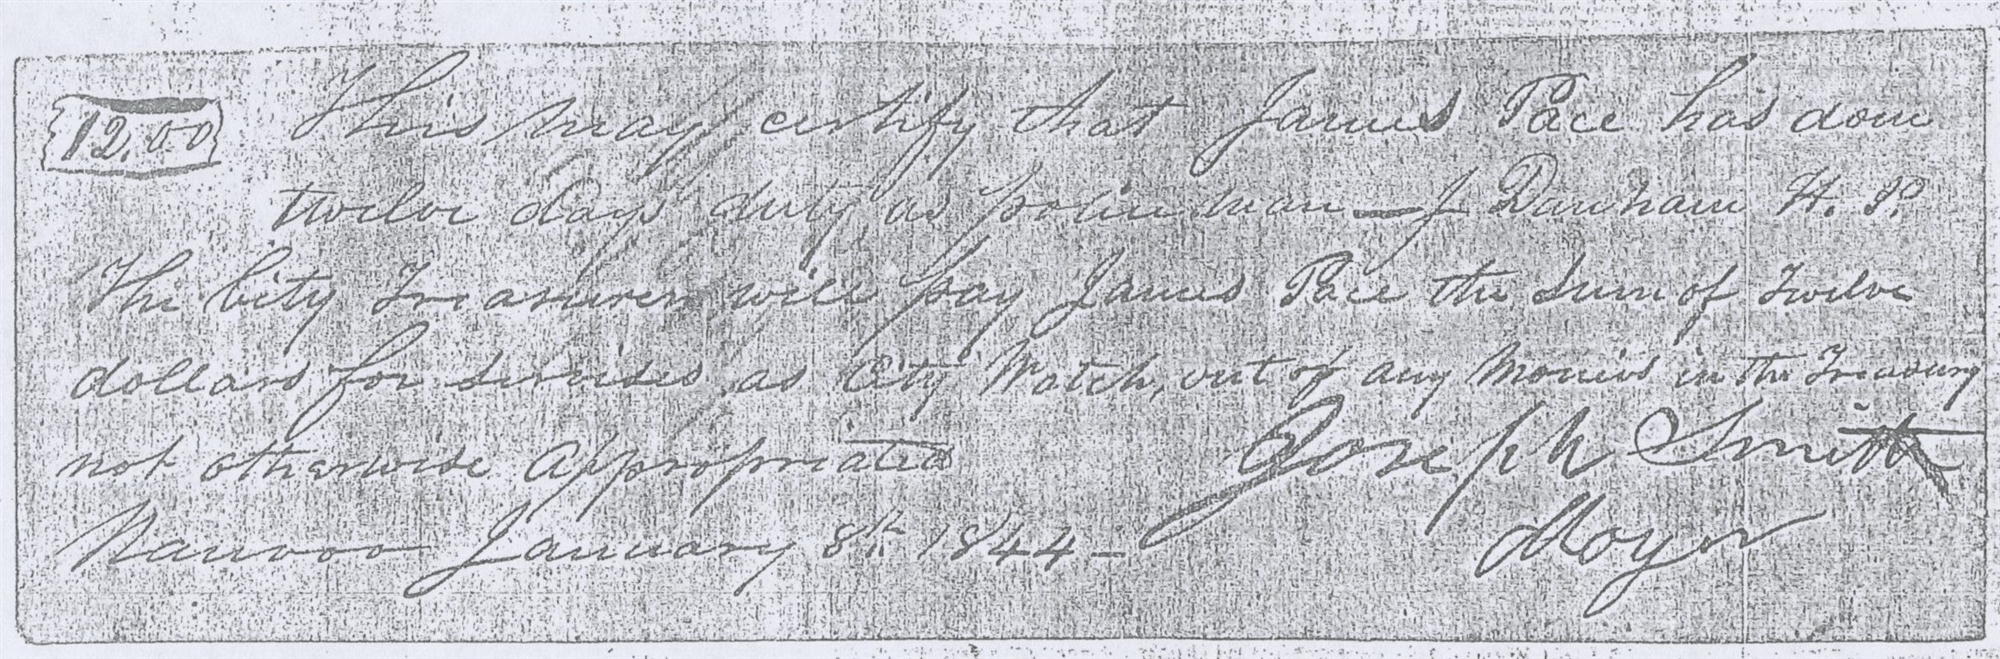 12.00
This may certify that James Pace has done
twelve days duty as police man — J Dunham H. P.
The City Treasurer will pay James Pace the Sum of Twelve
dollars for servises as City Watch, out of any Monies in the Treasury
not otherwise appropriated
Joseph Smith
Nauvoo January 8th 1844 —
Mayor